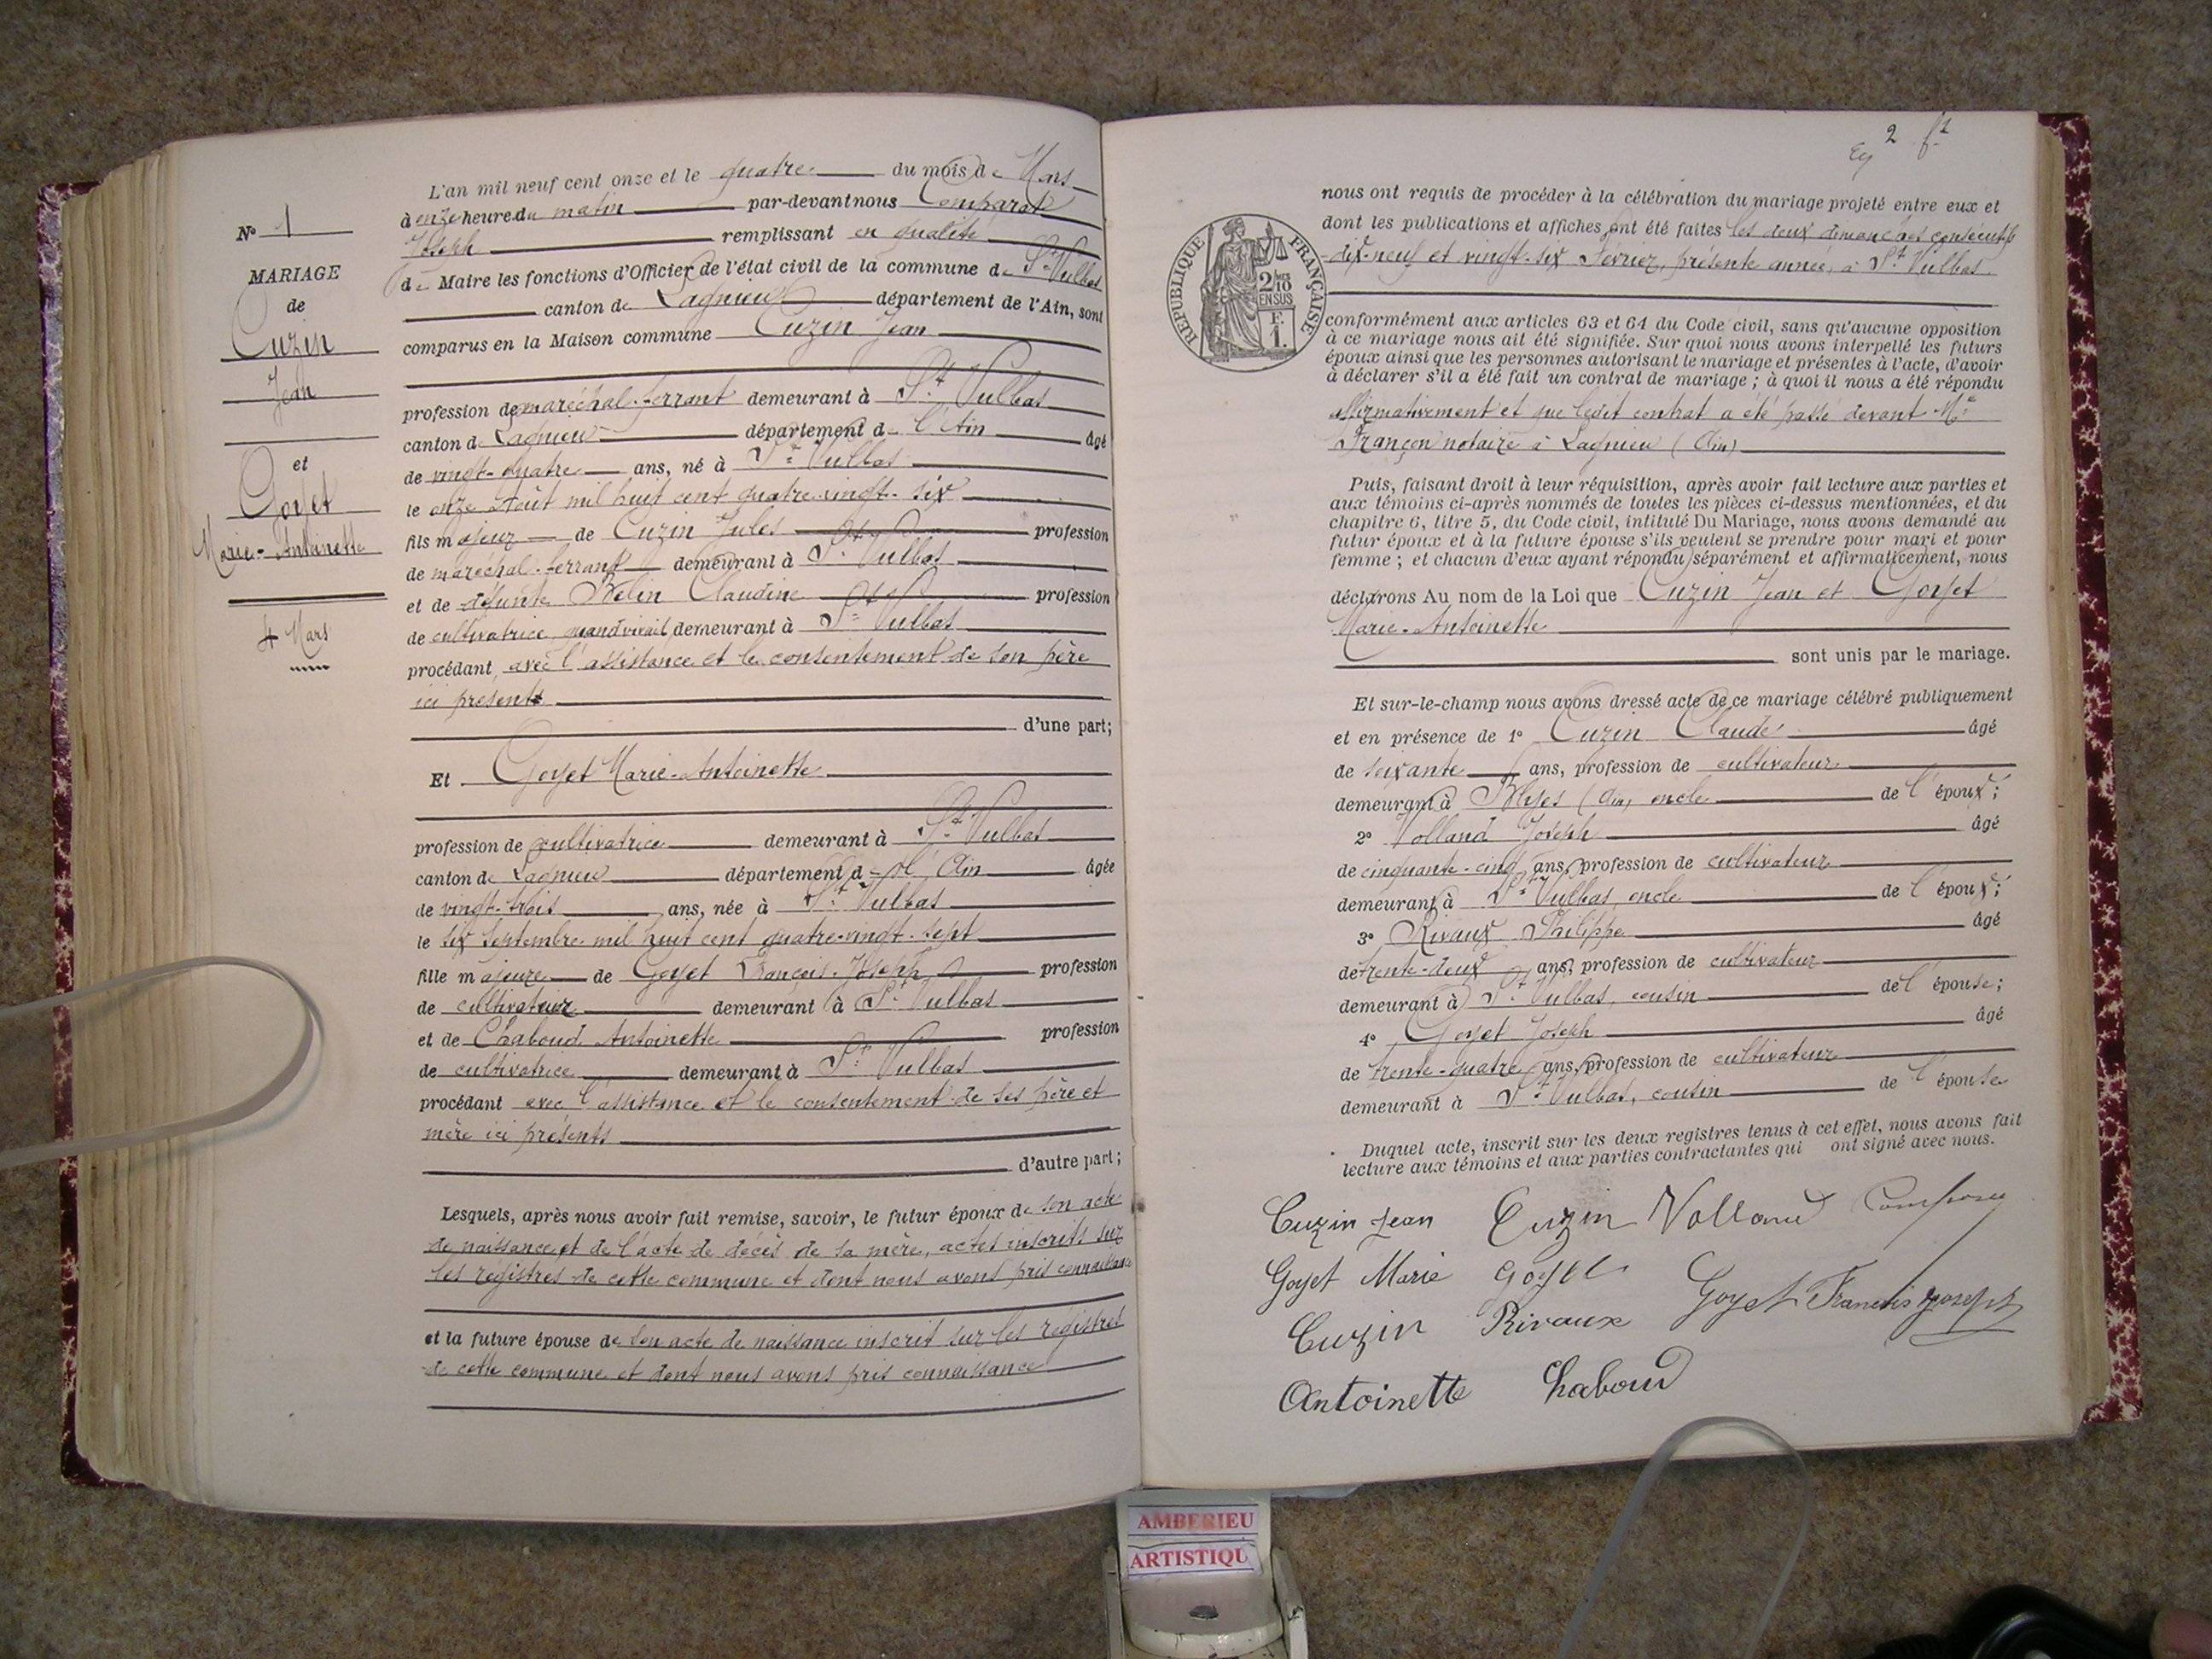 N° 1
MARIAGE
de
Cuzin
Jean
et
Goyet
Marie-Antoinette
4 Mars
L'an mil neuf cent onze et le quatre du mois de Mars
à onze heures du matin par-devant nous Comparat
Joseph remplissant en qualité
de Maire les fonctions d'Officier de l'état civil de la commune de St Vulbas
canton de Lagnieu département de l'Ain, sont
comparus en la Maison commune Cuzin Jean
profession de maréchal-ferrant demeurant à St Vulbas
canton de Lagnieu département de l'Ain âgé
de vingt-quatre ans, né à St Vulbas
le onze Août mil huit cent quatre-vingt-six
fils majeur de Cuzin Jules profession
de maréchal-ferrant demeurant à St Vulbas
et de défunte Belin Claudine profession
de cultivatrice quand vivait, demeurant à St Vulbas
procédant avec l'assistance et le consentement de son père
ici présent
d'une part;
Et Goyet Marie-Antoinette
profession de cultivatrice demeurant à St Vulbas
canton de Lagnieu département de l'Ain âgée
de vingt-trois ans, née à St Vulbas
le six Septembre mil huit cent quatre-vingt-sept
fille majeure de Goyet François-Joseph profession
de cultivateur demeurant à St Vulbas
et de Chaboud Antoinette profession
de cultivatrice demeurant à St Vulbas
procédant avec l'assistance et le consentement de ses père et
mère ici présents
d'autre part;
Lesquels, après nous avoir fait remise, savoir, le futur époux de son acte
de naissance et de l'acte de décès de sa mère, actes inscrits sur
les registres de cette commune et dont nous avons pris connaissance
et la future épouse de son acte de naissance inscrit sur les registres
de cette commune et dont nous avons pris connaissance
2
nous ont requis de procéder à la célébration du mariage projeté entre eux et
dont les publications et affiches ont été faites les deux dimanches consécutifs
dix-neuf et vingt-six Février, présente année, à St Vulbas
RÉPUBLIQUE FRANÇAISE
2/10
EN SUS
F.
1.
conformément aux articles 63 et 64 du Code civil, sans qu'aucune opposition
à ce mariage nous ait été signifiée. Sur quoi nous avons interpellé les futurs
époux ainsi que les personnes autorisant le mariage et présentes à l'acte, d'avoir
à déclarer s'il a été fait un contrat de mariage; à quoi il nous a été répondu
affirmativement et que ledit contrat a été passé devant Me
Françon notaire à Lagnieu (Ain)
Puis, faisant droit à leur réquisition, après avoir fait lecture aux parties et
aux témoins ci-après nommés de toutes les pièces ci-dessus mentionnées, et du
chapitre 6, titre 5, du Code civil, intitulé Du Mariage, nous avons demandé au
futur époux et à la future épouse s'ils veulent se prendre pour mari et pour
femme; et chacun d'eux ayant répondu séparément et affirmativement, nous
déclarons Au nom de la Loi que Cuzin Jean et Goyet
Marie-Antoinette
sont unis par le mariage.
Et sur-le-champ nous avons dressé acte de ce mariage célébré publiquement
et en présence de 1° Cuzin Claude âgé
de soixante ans, profession de cultivateur
demeurant à Blyes (Ain) oncle de l'époux;
2° Volland Joseph âgé
de cinquante-cinq ans, profession de cultivateur
demeurant à St Vulbas, oncle de l'époux;
3° Rivaux Philippe âgé
de trente-deux ans, profession de cultivateur
demeurant à St Vulbas, cousin de l'épouse;
4° Goyet Joseph âgé
de trente-quatre ans, profession de cultivateur
demeurant à St Vulbas, cousin de l'épouse
Duquel acte, inscrit sur les deux registres tenus à cet effet, nous avons fait
lecture aux témoins et aux parties contractantes qui ont signé avec nous.
Cuzin Jean Cuzin Volland
Goyet Marie Goyet Goyet Francois Joseph
Cuzin Rivaux
Antoinette Chaboud
AMBERIEU
ARTISTIQU